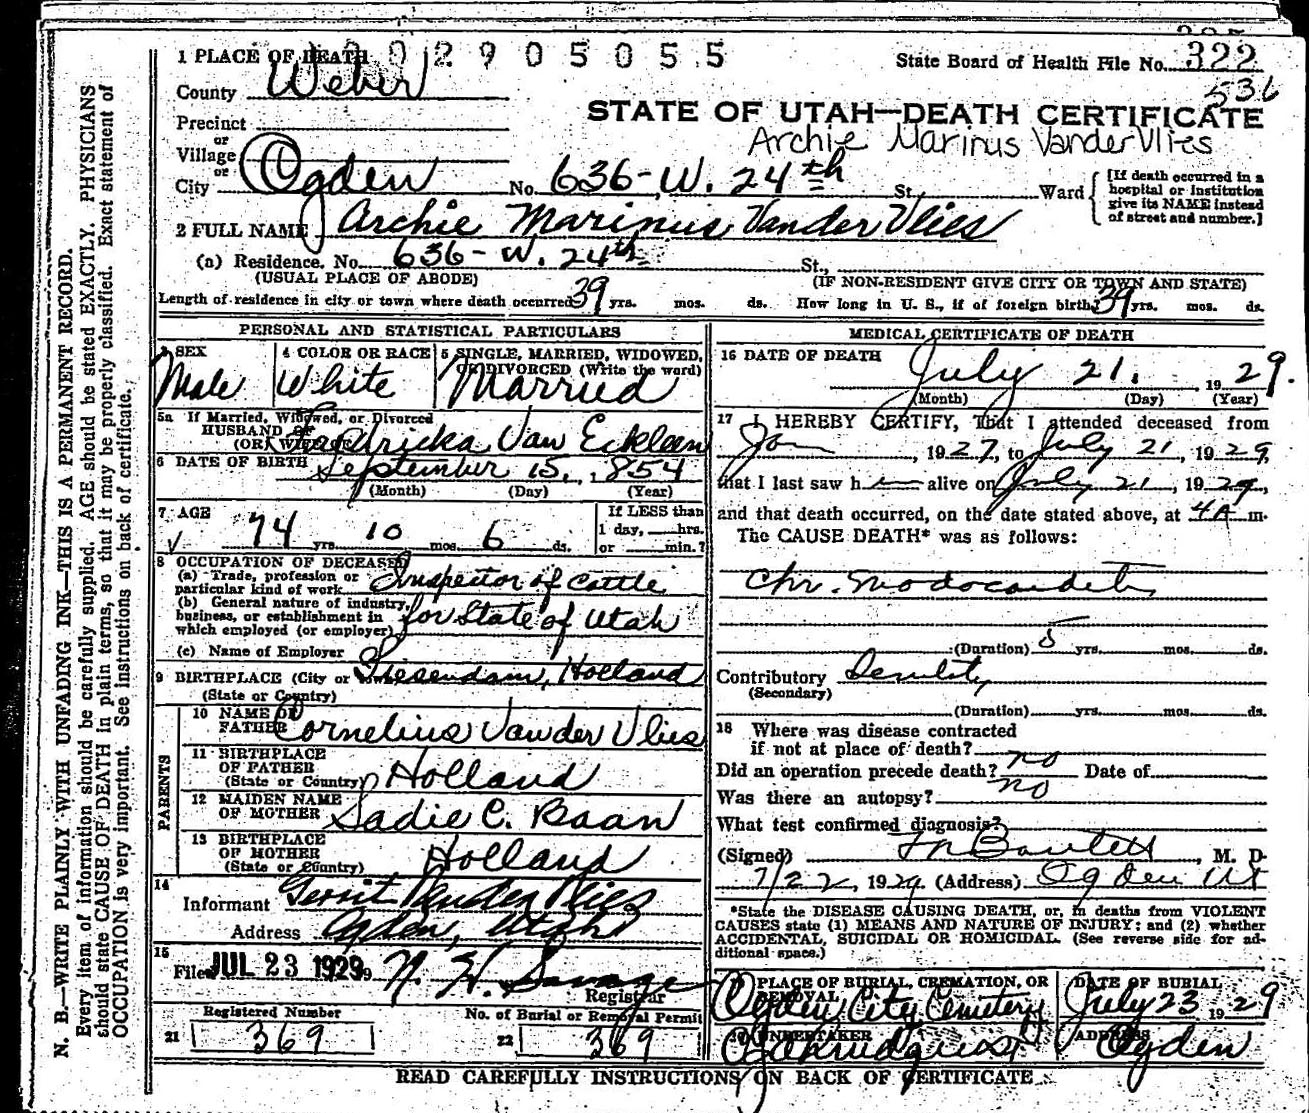 N. B.—WRITE PLAINLY WITH UNFADING INK—THIS IS A PERMANENT RECORD.
Every item of information should be carefully supplied. AGE should be stated EXACTLY. PHYSICIANS
should state CAUSE OF DEATH in plain terms, so that it may be properly classified. Exact statement of
OCCUPATION is very important. See instructions on back of certificate.
1 PLACE OF DEATH 2905055
State Board of Health File No. 322
536
County Weber
STATE OF UTAH—DEATH CERTIFICATE
Precinct
Archie Marinus VanderVlies
or
Village
or
City Ogden No. 636-W. 24th St. Ward
[If death occurred in a
hospital or institution
give its NAME instead
of street and number.]
2 FULL NAME Archie Marinus VanderVlies
(a) Residence. No. 636-W. 24th St.
(USUAL PLACE OF ABODE) (IF NON-RESIDENT GIVE CITY OR TOWN AND STATE)
Length of residence in city or town where death occurred 39 yrs. mos. ds. How long in U. S., if of foreign birth? 39 yrs. mos. ds.
PERSONAL AND STATISTICAL PARTICULARS
3 SEX
Male
4 COLOR OR RACE
White
5 SINGLE, MARRIED, WIDOWED,
OR DIVORCED (Write the word)
Married
5a If Married, Widowed, or Divorced
HUSBAND OF
(OR) WIFE OF Van
6 DATE OF BIRTH September 15, 1854
(Month) (Day) (Year)
7 AGE
74 yrs. 10 mos. 6 ds.
If LESS than
1 day, hrs.
or min.?
8 OCCUPATION OF DECEASED
(a) Trade, profession or
particular kind of work Inspector of Cattle
(b) General nature of industry,
business, or establishment in
which employed (or employer) for State of Utah
(c) Name of Employer
9 BIRTHPLACE (City or town) Holland
(State or Country)
PARENTS
10 NAME OF
FATHER Cornelius Vander Vlies
11 BIRTHPLACE
OF FATHER
(State or Country) Holland
12 MAIDEN NAME
OF MOTHER Sadie C. Baan
13 BIRTHPLACE
OF MOTHER
(State or Country) Holland
14
Informant Gerrit Vander Vlies
Address Ogden, Utah
15
Filed JUL 23 1929 N. H. Savage
Registrar
Registered Number
21 369
No. of Burial or Removal Permit
22 369
MEDICAL CERTIFICATE OF DEATH
16 DATE OF DEATH July 21. 1929.
(Month) (Day) (Year)
17 I HEREBY CERTIFY, That I attended deceased from
Jan, 1927, to July 21, 1929,
that I last saw h alive on July 21, 1929,
and that death occurred, on the date stated above, at 4A m.
The CAUSE DEATH* was as follows:
Chr.
(Duration) 5 yrs. mos. ds.
Contributory
(Secondary)
(Duration) yrs. mos. ds.
18 Where was disease contracted
if not at place of death?
Did an operation precede death? no Date of
Was there an autopsy? no
What test confirmed diagnosis?
(Signed), M. D.
7/22, 1929 (Address) Ogden Ut
*State the DISEASE CAUSING DEATH, or, in deaths from VIOLENT
CAUSES state (1) MEANS AND NATURE OF INJURY: and (2) whether
ACCIDENTAL, SUICIDAL OR HOMICIDAL. (See reverse side for ad-
ditional space.)
PLACE OF BURIAL, CREMATION, OR
REMOVAL
Ogden City Cemetery
DATE OF BURIAL
July 23 1929
UNDERTAKER
ADDRESS
Ogden
READ CAREFULLY INSTRUCTIONS ON BACK OF CERTIFICATE